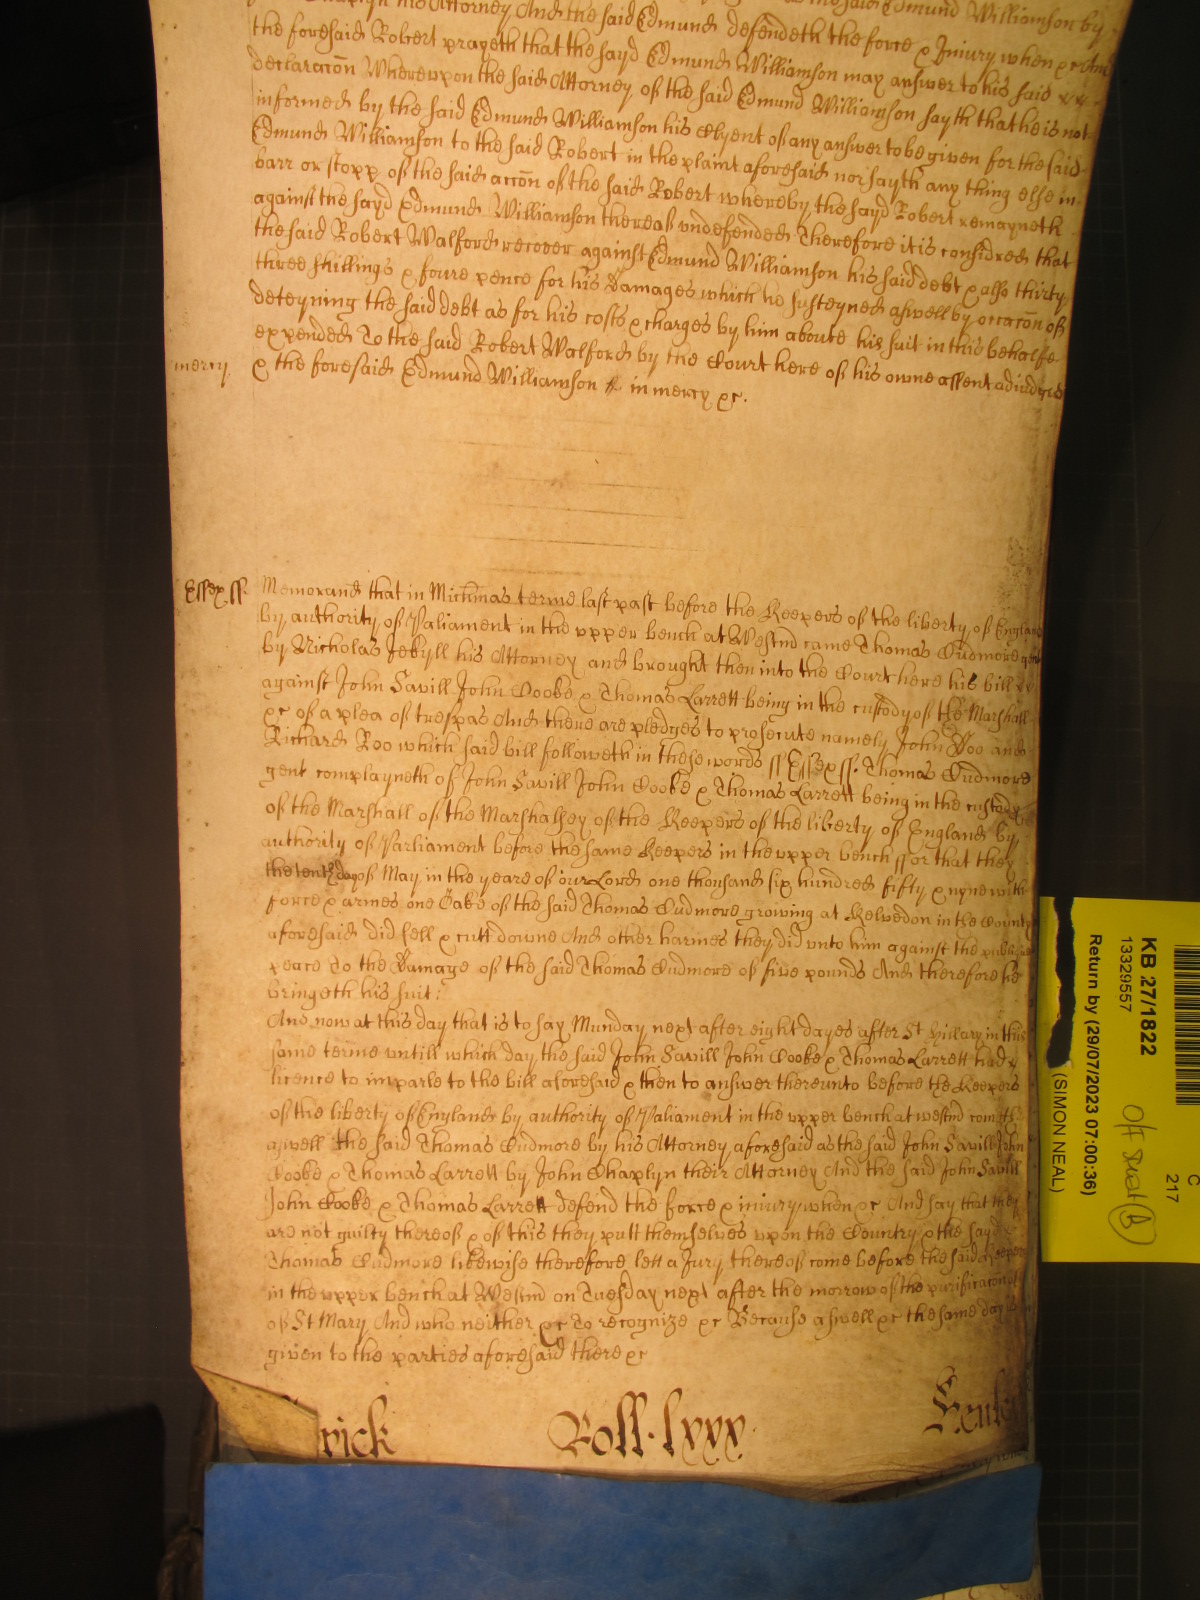 his Attorney And the said Edmund defendeth the force & Iniury when &c And
the foresaid Robert prayeth that the sayd Edmund Williamson may answer to his said
declaracōn Wherevpon the said Attorney of the said Edmund Williamson sayth that he is not
informed by the said Edmund Williamson his Clyent of any answer to be given for the said
Edmund Williamson to the said Robert in the plaint aforesaid nor sayth any thing else in
barr or stopp of the said accōn of the said Robert whereby the sayd Robert remayneth
against the sayd Edmund Williamson thereas vndefended Therefore it is considred that
the said Robert Walford recover against Edmund Williamson his said debt & also thirty
three shillings & foure pence for his Damages which he susteyned aswell by occacōn of
deteyning the said debt as for his costs & charges by him aboute his suit in this behalfe
expended To the said Robert Walford by the Court here of his owne assent adiudged
mercy & the foresaid Edmund Williamson in mercy &c.
Essex ss. Memorand that in Michmas terme last past before the Keepers of the liberty of England
by authority of Parliament in the vpper bench at Westmd came Thomas Cudmore gent
by Nicholas Jekyll his Attorney and brought then into the Court here his bill
against John Savill John Cooke & Thomas Larrett being in the custody of the Marshall
&c of a plea of trespas And there are pledges to prosecute namely John Doo and
Richard Roo which said bill followeth in these words ss Essex ss. Thomas Cudmore
gent complayneth of John Savill John Cooke & Thomas Larrett being in the custody
of the Marshall of the Marshalsey of the Keepers of the liberty of England by
authority of Parliament before the same Keepers in the vpper bench ffor that they
the tenth day of May in the yeare of our Lord one thousand six hundred fifty & nyne with
force & armes one Oake of the said Thomas Cudmore growing at Kelvedon in the County
aforesaid did fell & cutt downe And other harmes they did vnto him against the publique
peace To the Damage of the said Thomas Cudmore of five pounds And therefore he
bringeth his suit:
And now at this day that is to say Munday next after eight dayes after St Hillary in this
same terme vntill which day the said John Savill John Cooke & Thomas Larrett had
licence to imparle to the bill aforesaid & then to answer thereunto before the Keepers
of the liberty of England by authority of Parliament in the vpper bench at westmd cometh
aswell the said Thomas Cudmore by his Attorney aforesaid as the said John Savill John
Cooke & Thomas Larrett by John Chaplyn their Attorney And the said John Savill
John Cooke & Thomas Larrett defend the force & iniury when &c And say that they
are not guilty thereof & of this they putt themselves vpon the Country & the sayd
Thomas Cudmore likewise therefore lett a Jury thereof come before the said Keepers
in the vpper bench at Westmd on Tuesday next after the morrow of the purificacōn
of St Mary And who neither &c To recognize &c Because aswell &c the same day is
given to the parties aforesaid there &c
rick Roll. lxxx
KB 27/1822
13329557
Return by (29/07/2023 07:00:36)
(SIMON NEAL)
C
217